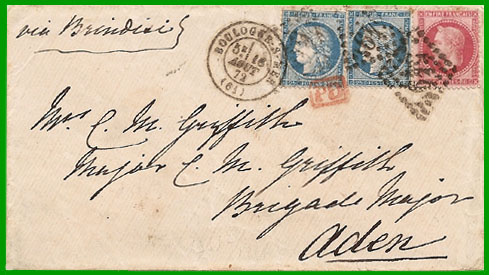 via Brindisi
BOULOGNE-S-MER
5E 16
AOUT
72
(61)
P.D.
EMPIRE FRANÇAIS
Mrs C. M. Griffith
Major C. M. Griffith
Brigade Major
Aden